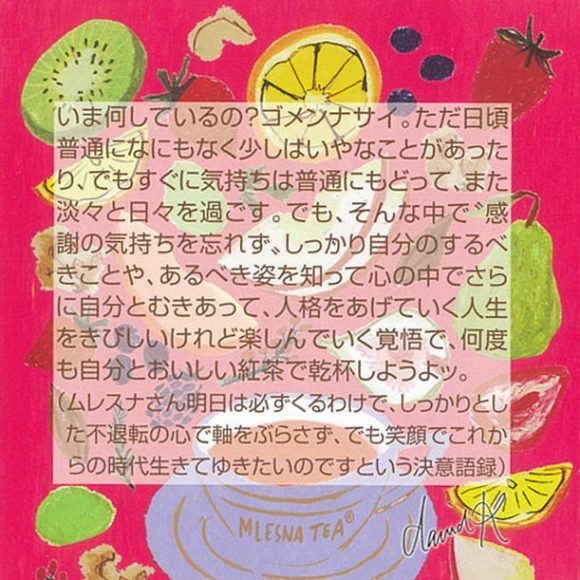 いま何しているの?ゴメンナサイ。ただ日頃
普通になにもなく少しはいやなことがあった
り、でもすぐに気持ちは普通にもどって、また
淡々と日々を過ごす。でも、そんな中で〝感
謝の気持ちを忘れず〟しっかり自分のするべ
きことや、あるべき姿を知って心の中でさら
に自分とむきあって、人格をあげていく人生
をきびしいけれど楽しんでいく覚悟で、何度
も自分とおいしい紅茶で乾杯しようよッ。
(ムレスナさん明日は必ずくるわけで、しっかりとし
た不退転の心で軸をぶらさず、でも笑顔でこれか
らの時代生きてゆきたいのですという決意語録)
MLESNA TEA®
David K